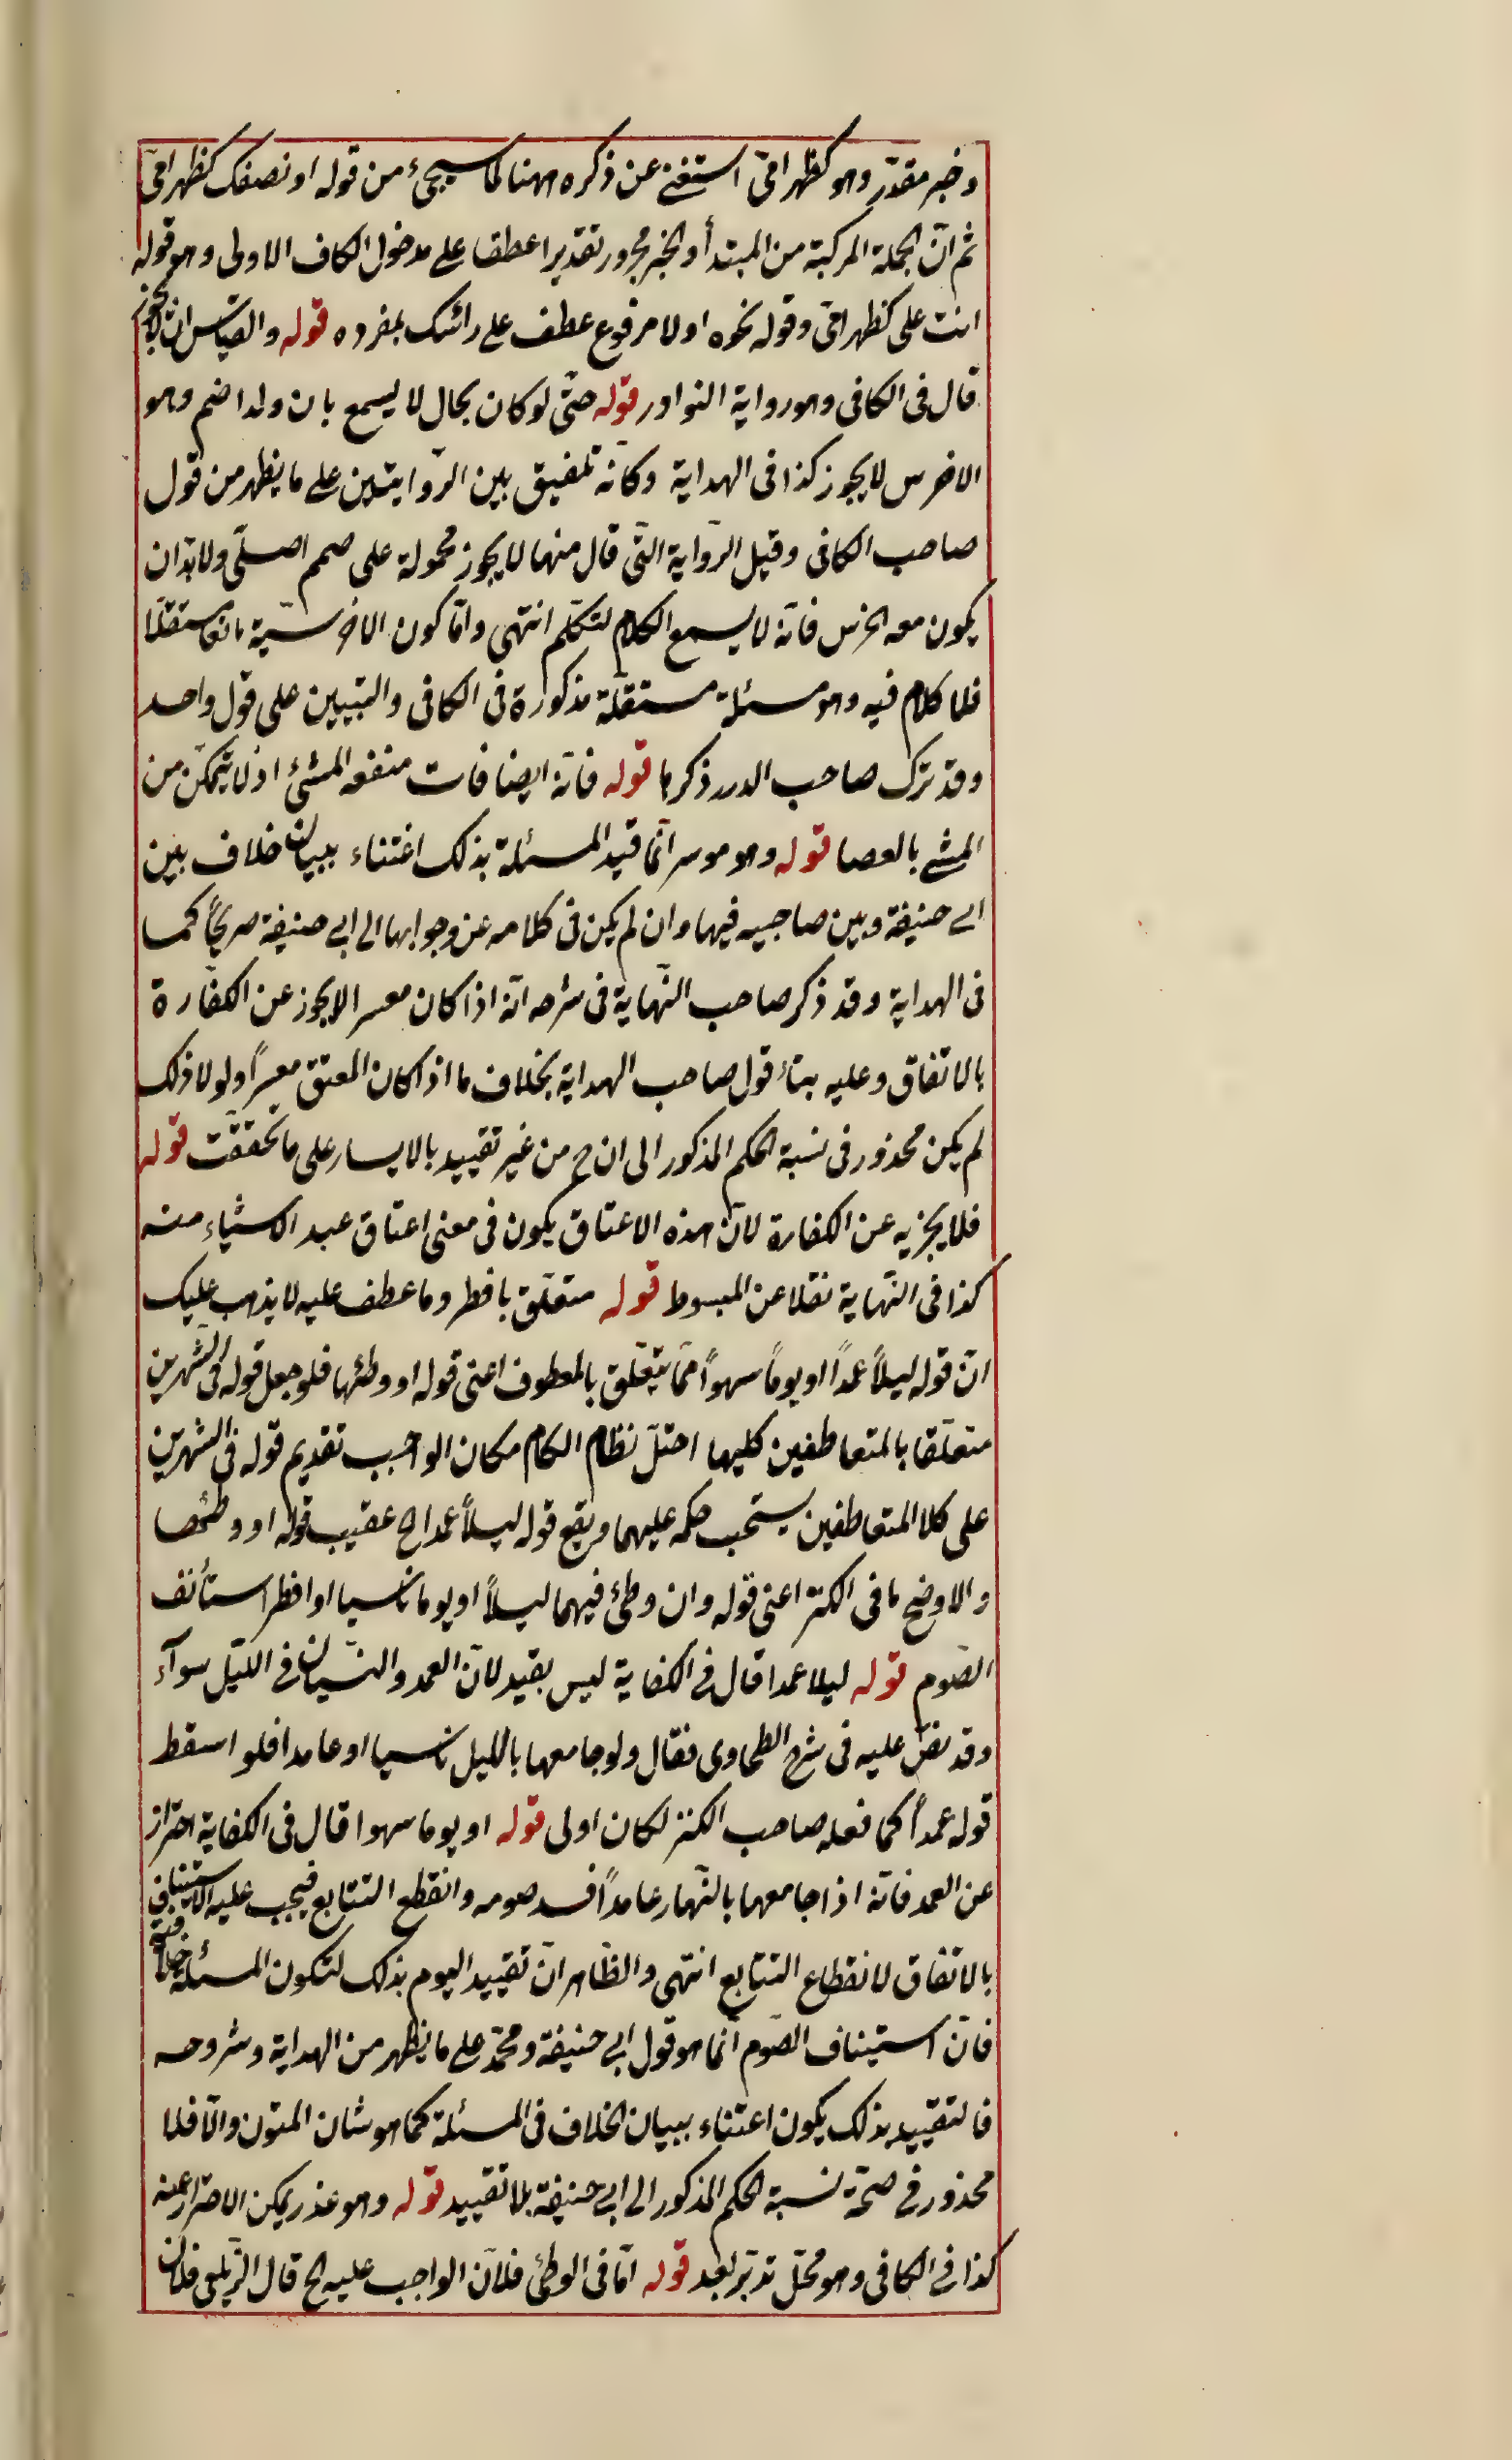 وخبر مقدّر وهو كظهر امّى استغنے عن ذكره ههنا لما سيجئ من قوله او نصفك كظهر امّى
ثم انّ الجملة المركبة من المبتدأ والخبر مجرور تقديرا عطفا على مدخول الكاف الاولى وهو قوله
انت على كظهر امّى وقوله نحوه اولا مرفوع عطف على رائسك بمفرده قوله والقياس ان لا يجوز
قال فى الكافى وهو رواية النوادر قوله حتّى لو كان بحال لا يسمع بان ولد اصم وهو
الاخرس لا يجوز كذا فى الهداية وكانّه تلفيق بين الرّوايتين على ما يظهر من قول
صاحب الكافى وقيل الرّواية الّتى قال منها لا يجوز محمولة على صمم اصلّى ولا بدّ ان
يكون معه الخرس فانّه لا يسمع الكلام لتكلّم انتهى وامّا كون الاخرسيّة مانعا مستقلّا
فلا كلام فيه وهو مسئلة مستقلّة مذكورة فى الكافى والتبيين على قول واحد
وقد ترك صاحب الدرر ذكرها قوله فانّه ايضا فات منفعه المشئ اذ لا يتمكّن من
المشے بالعصا قوله وهو موسر انّما قيد المسئلة بذلك اغتناء ببيان خلاف بين
ابى حنيفة وبين صاحبيه فيها وان لم يكن فى كلامه عن وجوابها الى ابى حنيفة صريحًا كما
فى الهداية وقد ذكر صاحب النّهاية فى شرحه انّه اذا كان معسرا لا يجوز عن الكفّارة
بالاتفاق وعليه بناء قول صاحب الهداية بخلاف ما اذا كان المعتق معسرًا ولولا ذلك
لم يكن محذور فى نسبة الحكم المذكور الى ان ح من غير تقييد بالايسار على ما تحققت قوله
فلا يجزيه عن الكفارة لانّ هذه الاعتاق يكون فى معنى اعتاق عبد الاشياء منه
كذا فى النّهاية نقلا عن المبسوط قوله متعلّق بافطر وما عطف عليه لا يذهب عليك
انّ قوله ليلاً عمدًا او يومًا سهوًا ممّا يتعلّق بالمعطوف اعنى قوله او وطئها فلو جعل قوله فى الشّهرين
متعلّقا بالمتعاطفين كليهما اختلّ نظام الكلام مكان الواجب تقديم قوله فى الشهرين
على كلا المتعاطفين يستحب حكمه عليهما ويقع قوله ليلاً عمدا ح عقيب قوله او وطئها
والاوضح ما فى الكنز اعنى قوله وان وطئ فيهما ليلاً او يوما ناسيا او افطر استأنف
الصّوم قوله ليلا عمدا قال فى الكفاية ليس بقيد لانّ العمد والنّسيان فى اللّيل سوآء
وقد نصّ عليه فى شرح الطحاوى فقال ولو جامعها بالليل ناسيا او عامدا فلو اسقط
قوله عمدًا كما فعله صاحب الكنز لكان اولى قوله او يوما سهوا قال فى الكفاية احتراز
عن العمد فانّه اذا جامعها بالنّهار عامدًا فسد صومه وانقطع التتابع فيجب عليه الاستيناف
بالاتفاق لانقطاع التتابع انتهى والظّاهر انّ تقييد اليوم بذلك لتكون المسئلة خلافية
فانّ استيناف الصّوم انّما هو قول ابى حنيفة ومحمّد على ما يظهر من الهداية وشروحه
فالتقييد بذلك يكون اعتناء ببيان الخلاف فى المسئلة كما هو شان المتون والّا فلا
محذور فى صحّة نسبة الحكم المذكور الى ابى حنيفة بلا تقييد قوله وهو عذر يمكن الاحتراز عنه
كذا فى الكافى وهو محلّ تدبّر بعد قوله امّا فى الوطئ فلانّ الواجب عليه الخ قال الزّيلعى فلان